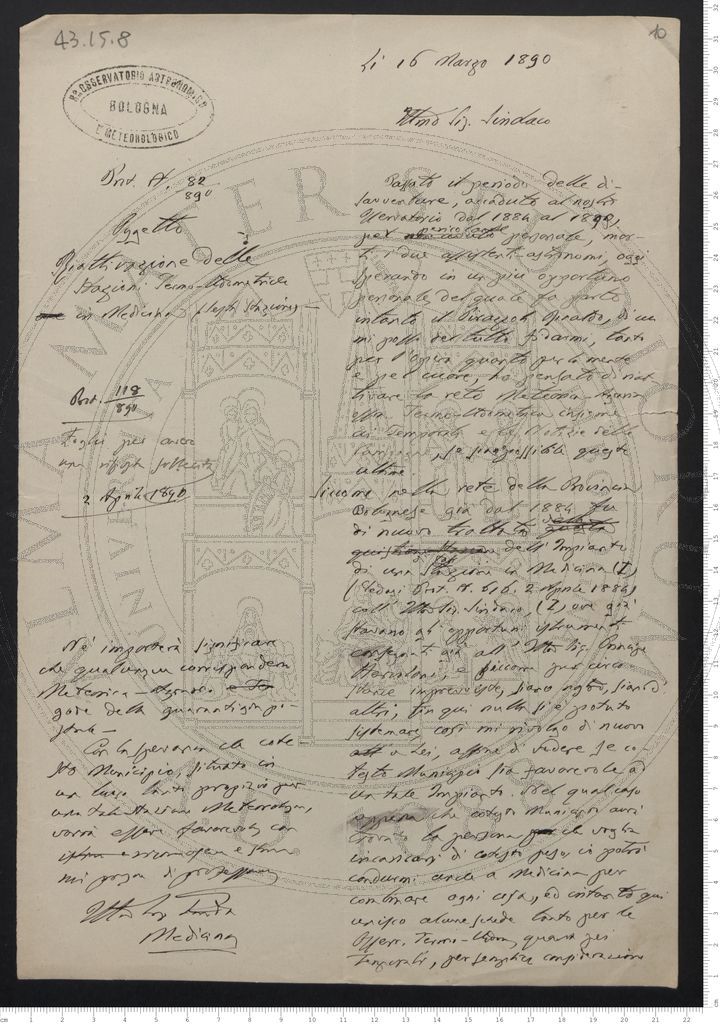 43.15.8
10
R. OSSERVATORIO ASTRONOMICO
BOLOGNA
E METEOROLOGICO
Li 16 Marzo 1890
Illmo Sig. Sindaco
Prot. N. 82/890
Oggetto
Riattivazione delle
Stazioni Termo-Udometriche
in Medicina
Prot. 118/890
una risposta sollecita
2 Aprile 1890
Passato il periodo delle di-
savventure, accadute al nostro
Osservatorio dal 1884 al 1890,
per personale, mor-
ti due assistenti astronomi, oggi
sperando in un più opportuno
personale del quale fa parte
intanto il
mi posso del tutto fidarmi, tanto
per l'opera quanto per la mente
e pel cuore, ho pensato di riat-
tivare la rete Meteorico-Agraria
ossia Termo-Udometrica insieme
ai Temporali e le Notizie delle
Campagne, se possibili queste
ultime
Siccome nella rete della Provincia
Bolognese già dal 1884 fu
di nuovo trattato
dell'Impianto
di una Stazione in Medicina (I)
(Vedasi Prot. N. 2 Aprile 1884)
coll' Illmo Sig. Sindaco, (I) ove già
stavano gli opportuni istrumenti
consegnati già all' Illmo Sig.
e siccome per circo-
stanze impreviste, siano nostre, siano di
altri, fin qui nulla si è potuto
sistemare così mi rivolgo di nuovo
a Lei, affine di vedere se co-
testo Municipio sia favorevole a
un tale Impianto. Nel qual caso
appena che cotesto Municipio avrà
trovato la persona che voglia
incaricarsi di cotesto peso, io potrò
condurmi anche a Medicina per
combinare ogni cosa, ed intanto qui
unisco alcune schede tanto per le
Osserv. Termo-Udom, quanto pei
Temporali, per semplice considerazione
Nè importerà significare
che qualunque corrispondenza
Meteorica-Agraria
gode della franchigia po-
stale -
Con la speranza che cote-
sto Municipio, situato in
un luogo tanto propizio per
una tale Stazione Meteorologica,
vorrà essere favorevole, con
e stima
mi pregio di professarmi
Illmo Sig. Sindaco
Medicina